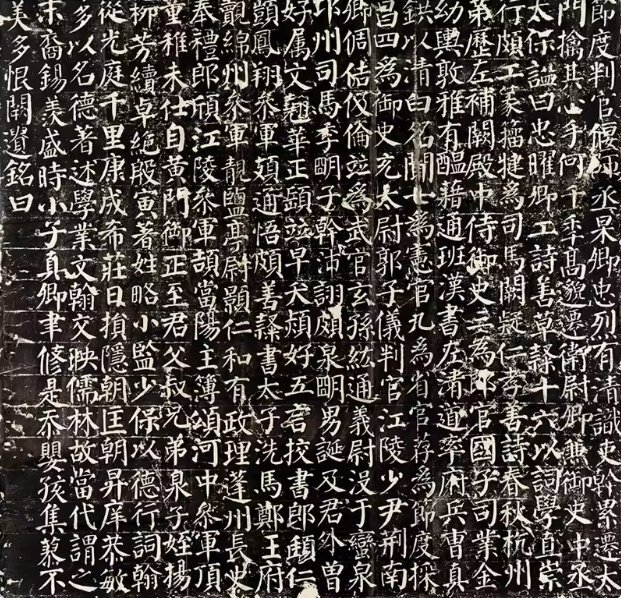 節度判官偃師丞杲卿忠烈有清識吏幹累遷太
門擒其心手何千秊高邈遷衛尉卿兼御史中丞
太保謚曰忠曜卿工詩善草隸十六以詞學直崇
行頗工篆籀犍為司馬闕疑仁孝善詩春秋杭州
弟歷左補闕殿中侍御史三為郎官國子司業金
幼輿敦雅有醞藉通班漢書左清道率府兵曹真
鉷以清白名聞七為憲官九為省官荐為節度採
昌四為御史充太尉郭子儀判官江陵少尹荊南
卿倜佶伋倫竝為武官玄孫紘通義尉沒于蠻泉
邛州司馬季明子幹沛詡頗泉明男誕及君外曾
好属文翹華正頵竝早夭頻好五言挍書郎頲仁
顗鳳翔叅軍頍通悟頗善隸書太子洗馬鄭王府
覿綿州叅軍靚鹽亭尉顥仁和有政理蓬州長史
奉禮郎頎江陵叅軍頡當陽主簿頌河中叅軍頂
重稚未仕自黃門御正至君父叔兄弟泉子姪揚
柳芳續卓絕殷寅著姓略小監少保以德行詞翰
從光庭千里康成希莊日損隱朝匡朝昇庠恭敏
多以名德著述學業文翰交映儒林故當代謂之
末裔錫羨盛時小子真卿聿脩是忝嬰孩集蓼不
美多恨闕遺銘曰